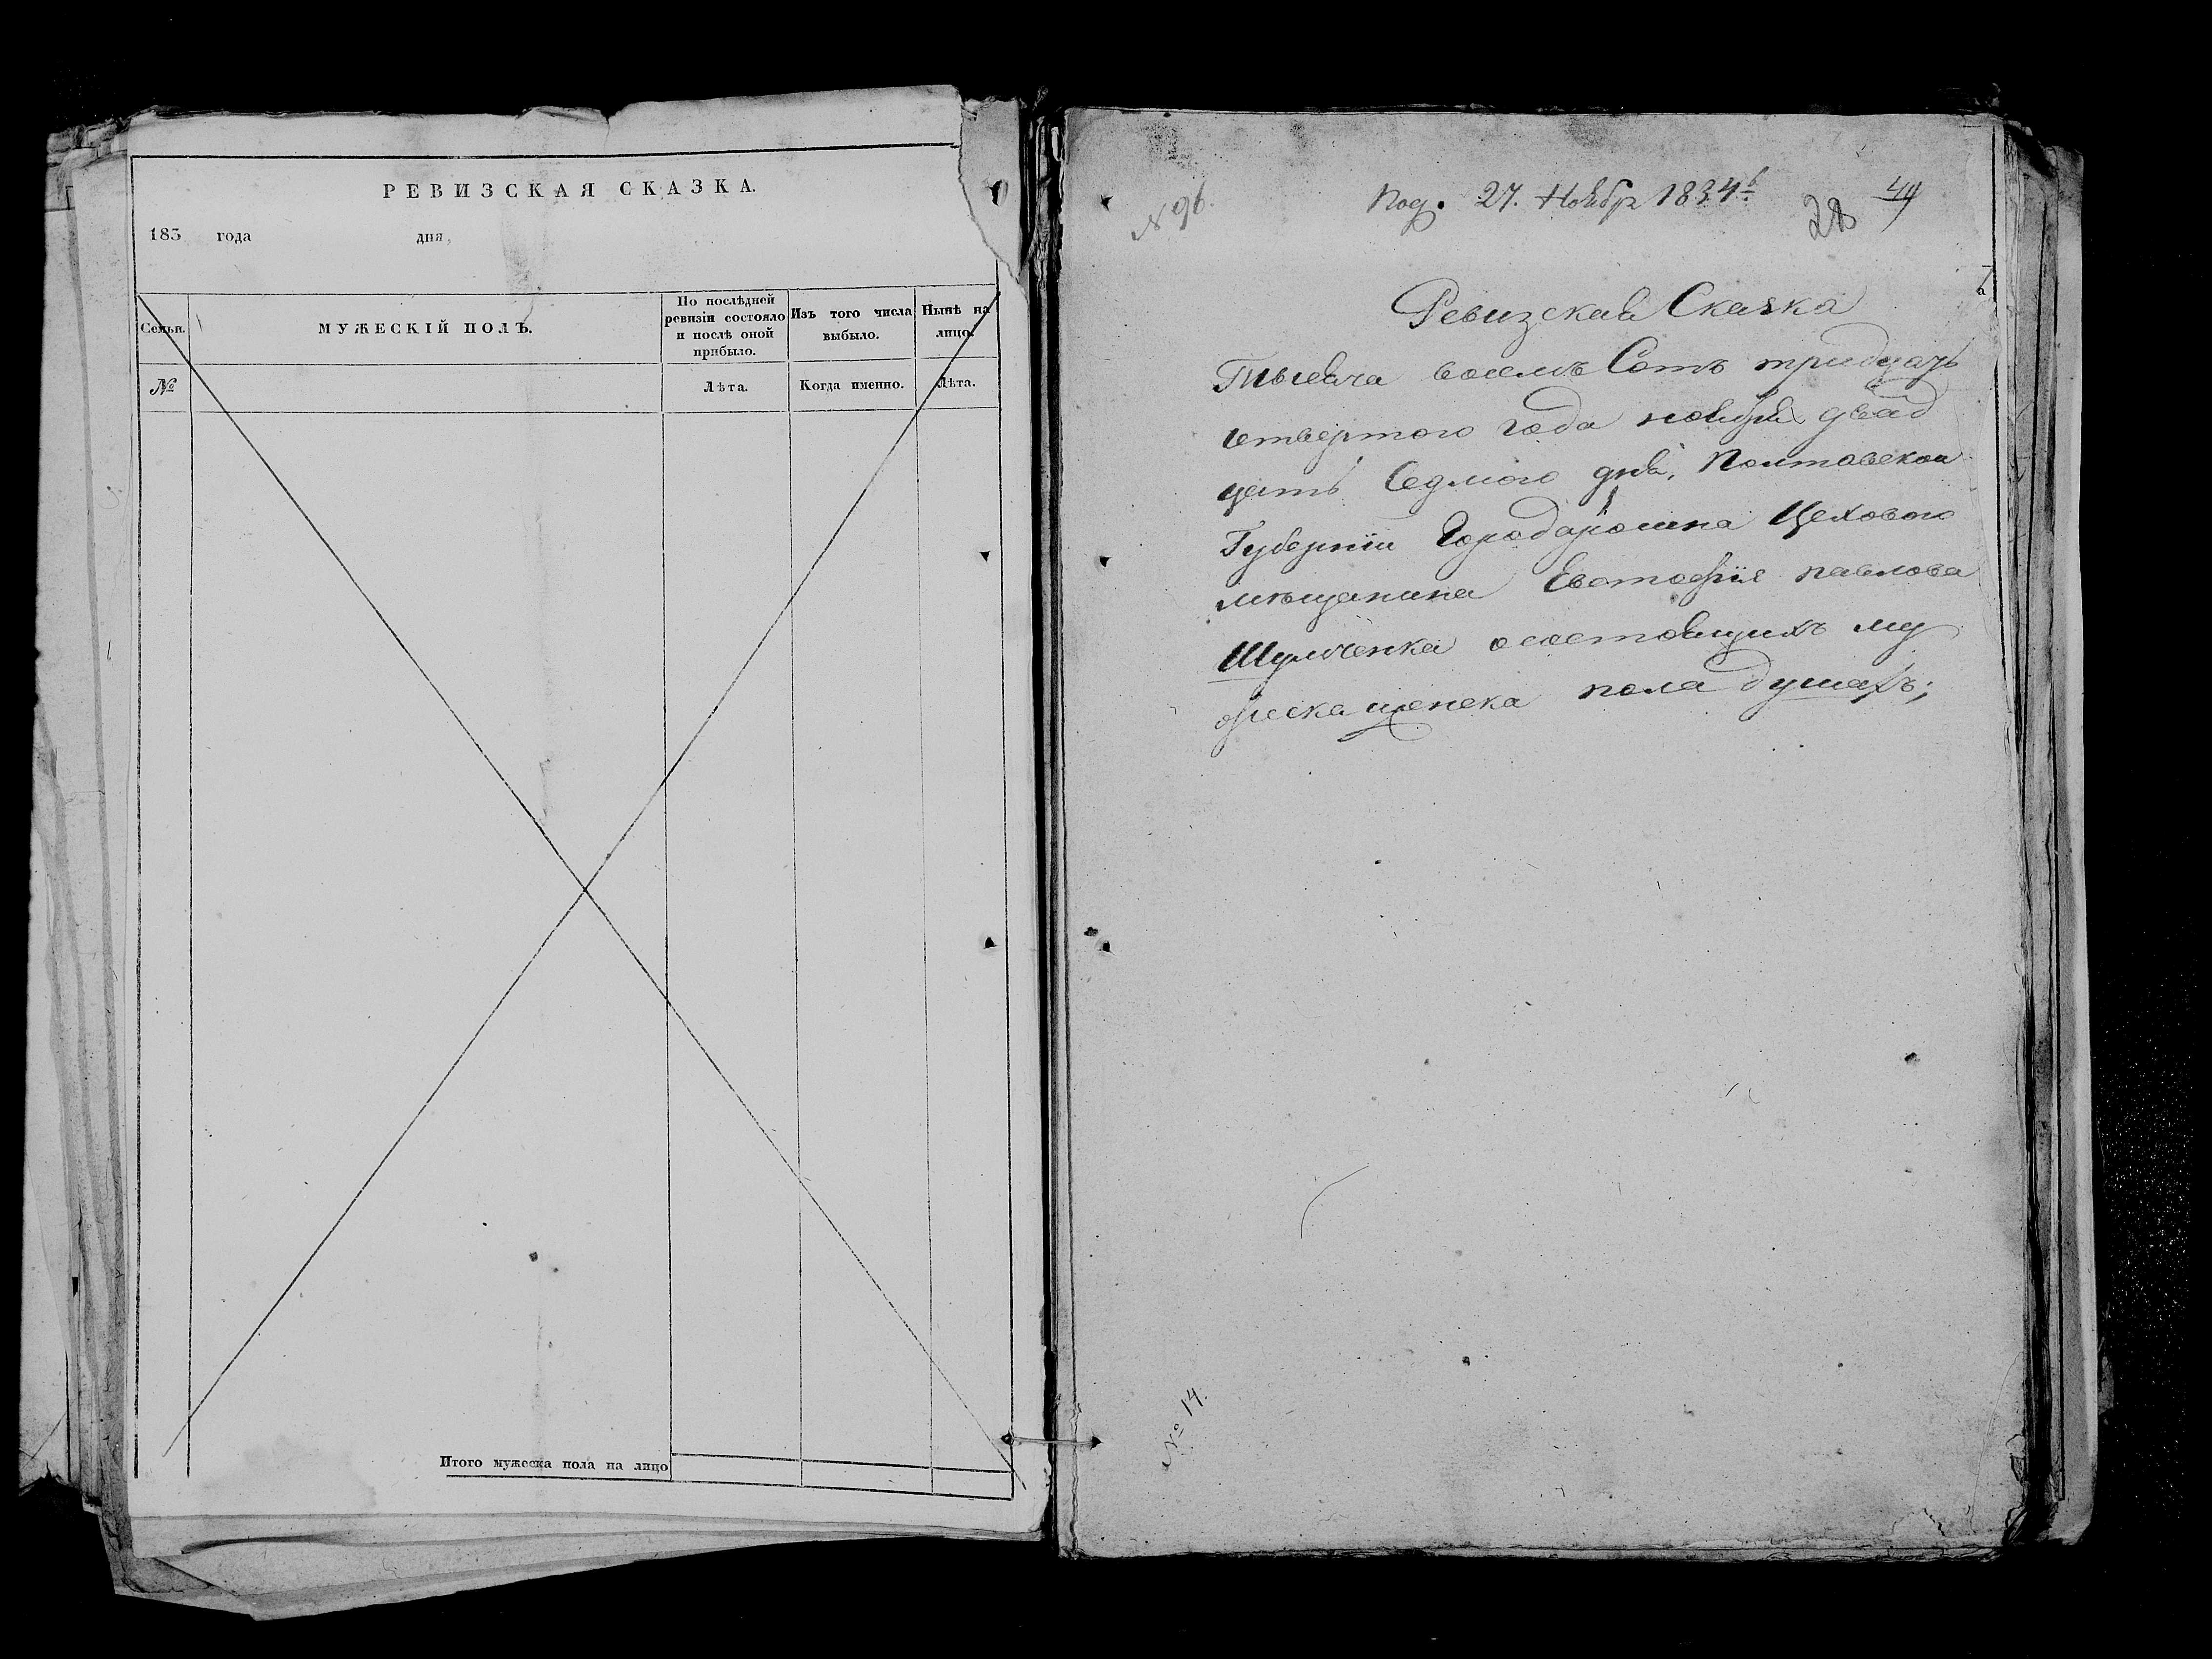 РЕВИЗСКАЯ СКАЗКА.
183 года дня,
Семьи. МУЖЕСКІЙ ПОЛЪ. По послѣдней ревизіи состояло и послѣ оной прибыло. Изъ того числа выбыло. Нынѣ на лицо.
№ Лѣта. Когда именно. Лѣта.
Итого мужеска пола на лицо
№ 96.
Под. 27. Ноябр 1834
28 44
Ревизская Сказка
Тысяча восемъ Сотъ тридцать
четвертого года ноября двад
цать Седмого дня, Полтавской
Губернїи Города Цехового
мѣщанина Евстафїя павлова
Шульченка о состоящихъ му
жеска женска пола душахъ;
№ 14.